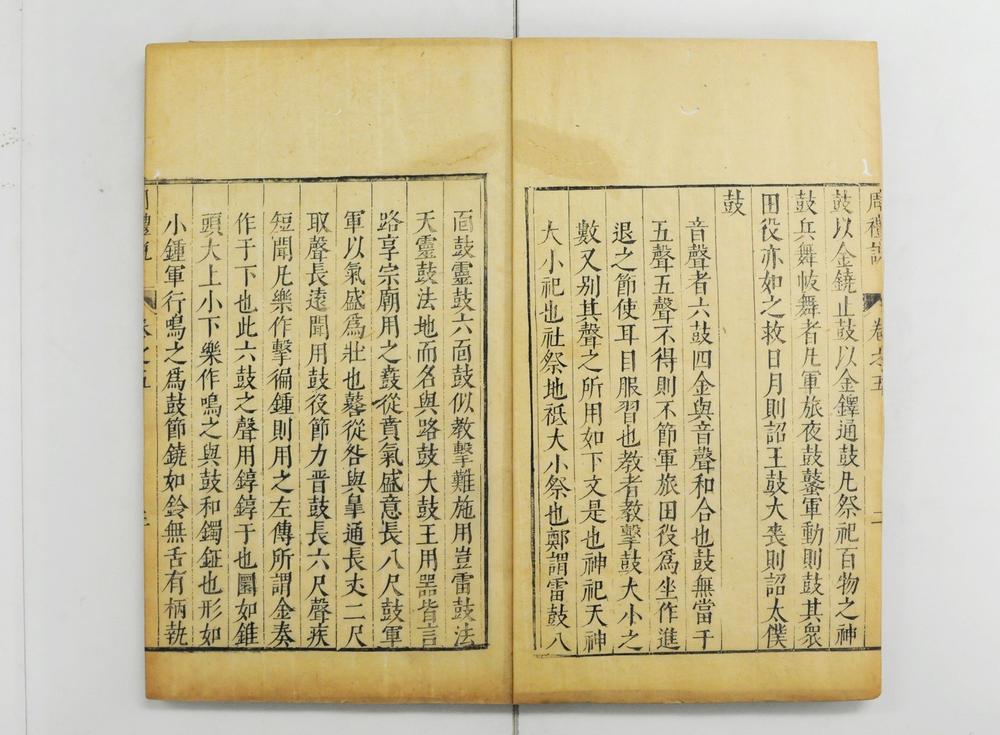 周禮說 卷之五 二
鼓以金鐃止鼓以金鐸通鼓凡祭祀百物之神
鼓兵舞帗舞者凡軍旅夜鼓鼜軍動則鼓其衆
田役亦如之救日月則詔王鼓大喪則詔太僕
鼓
音聲者六鼓四金與音聲和合也鼓無當于
五聲五聲不得則不節軍旅田役爲坐作進
退之節使耳目服習也教者教擊鼓大小之
數又別其聲之所用如下文是也神祀天神
大小祀也社祭地祗大小祭也鄭謂雷鼓八
面鼓靈鼓六面鼓似教擊難施用豈雷鼓法
天靈鼓法地而名與路鼓大鼓王用器皆言
路享宗廟用之鼖從賁氣盛意長八尺鼓軍
軍以氣盛爲壯也鼛從咎與臯通長丈二尺
取聲長遠聞用鼓役節力晋鼓長六尺聲疾
短聞凡樂作擊徧鍾則用之左傳所謂金奏
作于下也此六鼓之聲用錞錞于也圜如錐
頭大上小下樂作鳴之與鼓和鐲鉦也形如
小鍾軍行鳴之爲鼓節鐃如鈴無舌有柄執
周禮說 卷之五